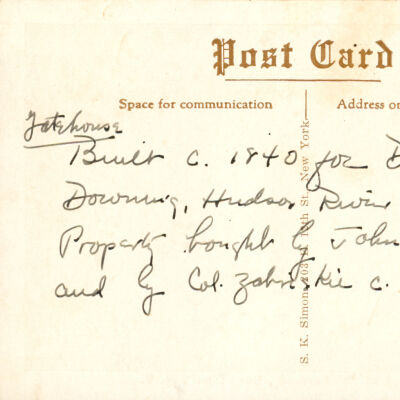 Post Card
Space for communication
Address o
Gatehouse
Built c. 1840 for D
Downing, Hudson River
Property bought by John
and by Col. Zabriskie c.
S. K. Simon, New York